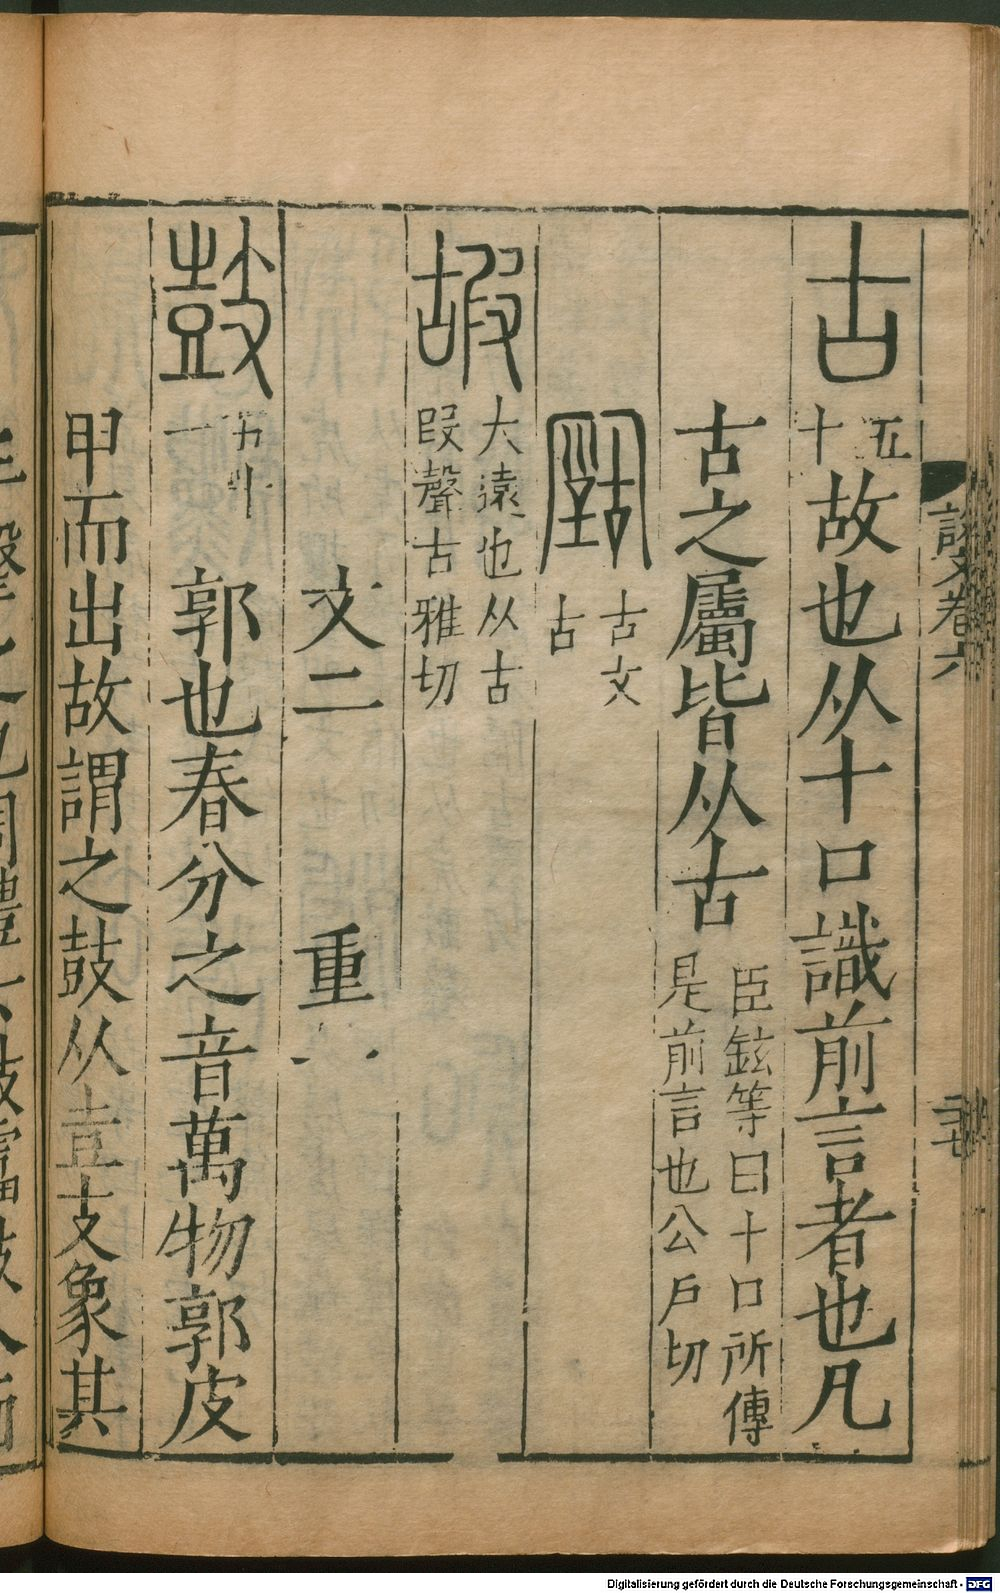 古 五十 故也从十口識前言者也凡
古之屬皆从古 臣鉉等曰十口所傳是前言也公戶切
古文古
嘏 大遠也从古叚聲古雅切
文二 重一
鼓 五十一 郭也春分之音萬物郭皮
甲而出故謂之鼓从壴支象其
說文卷六
Digitalisierung gefördert durch die Deutsche Forschungsgemeinschaft - DFG